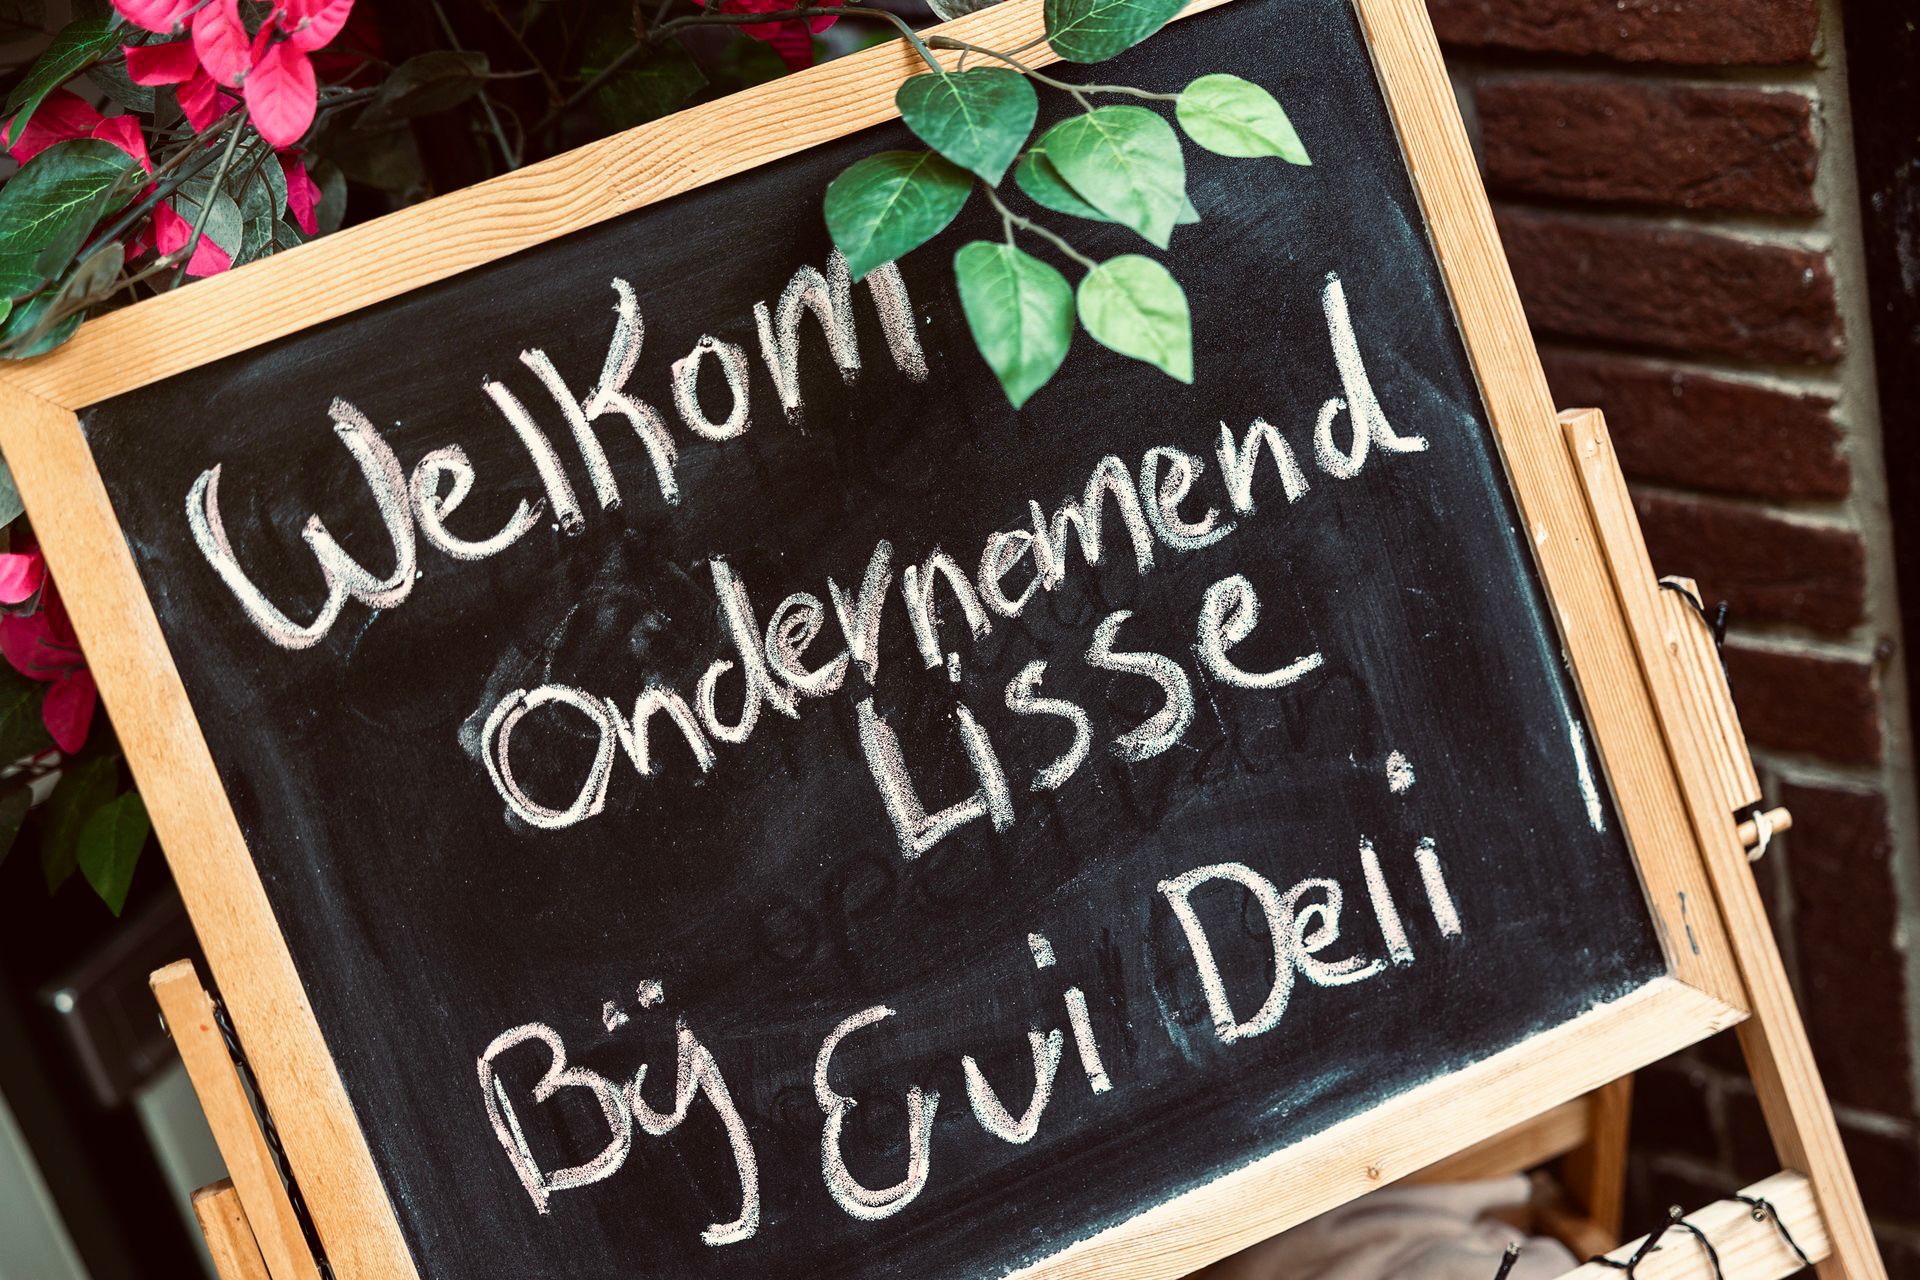 Welkom
Ondernemend
Lisse
Bij Evi Deli